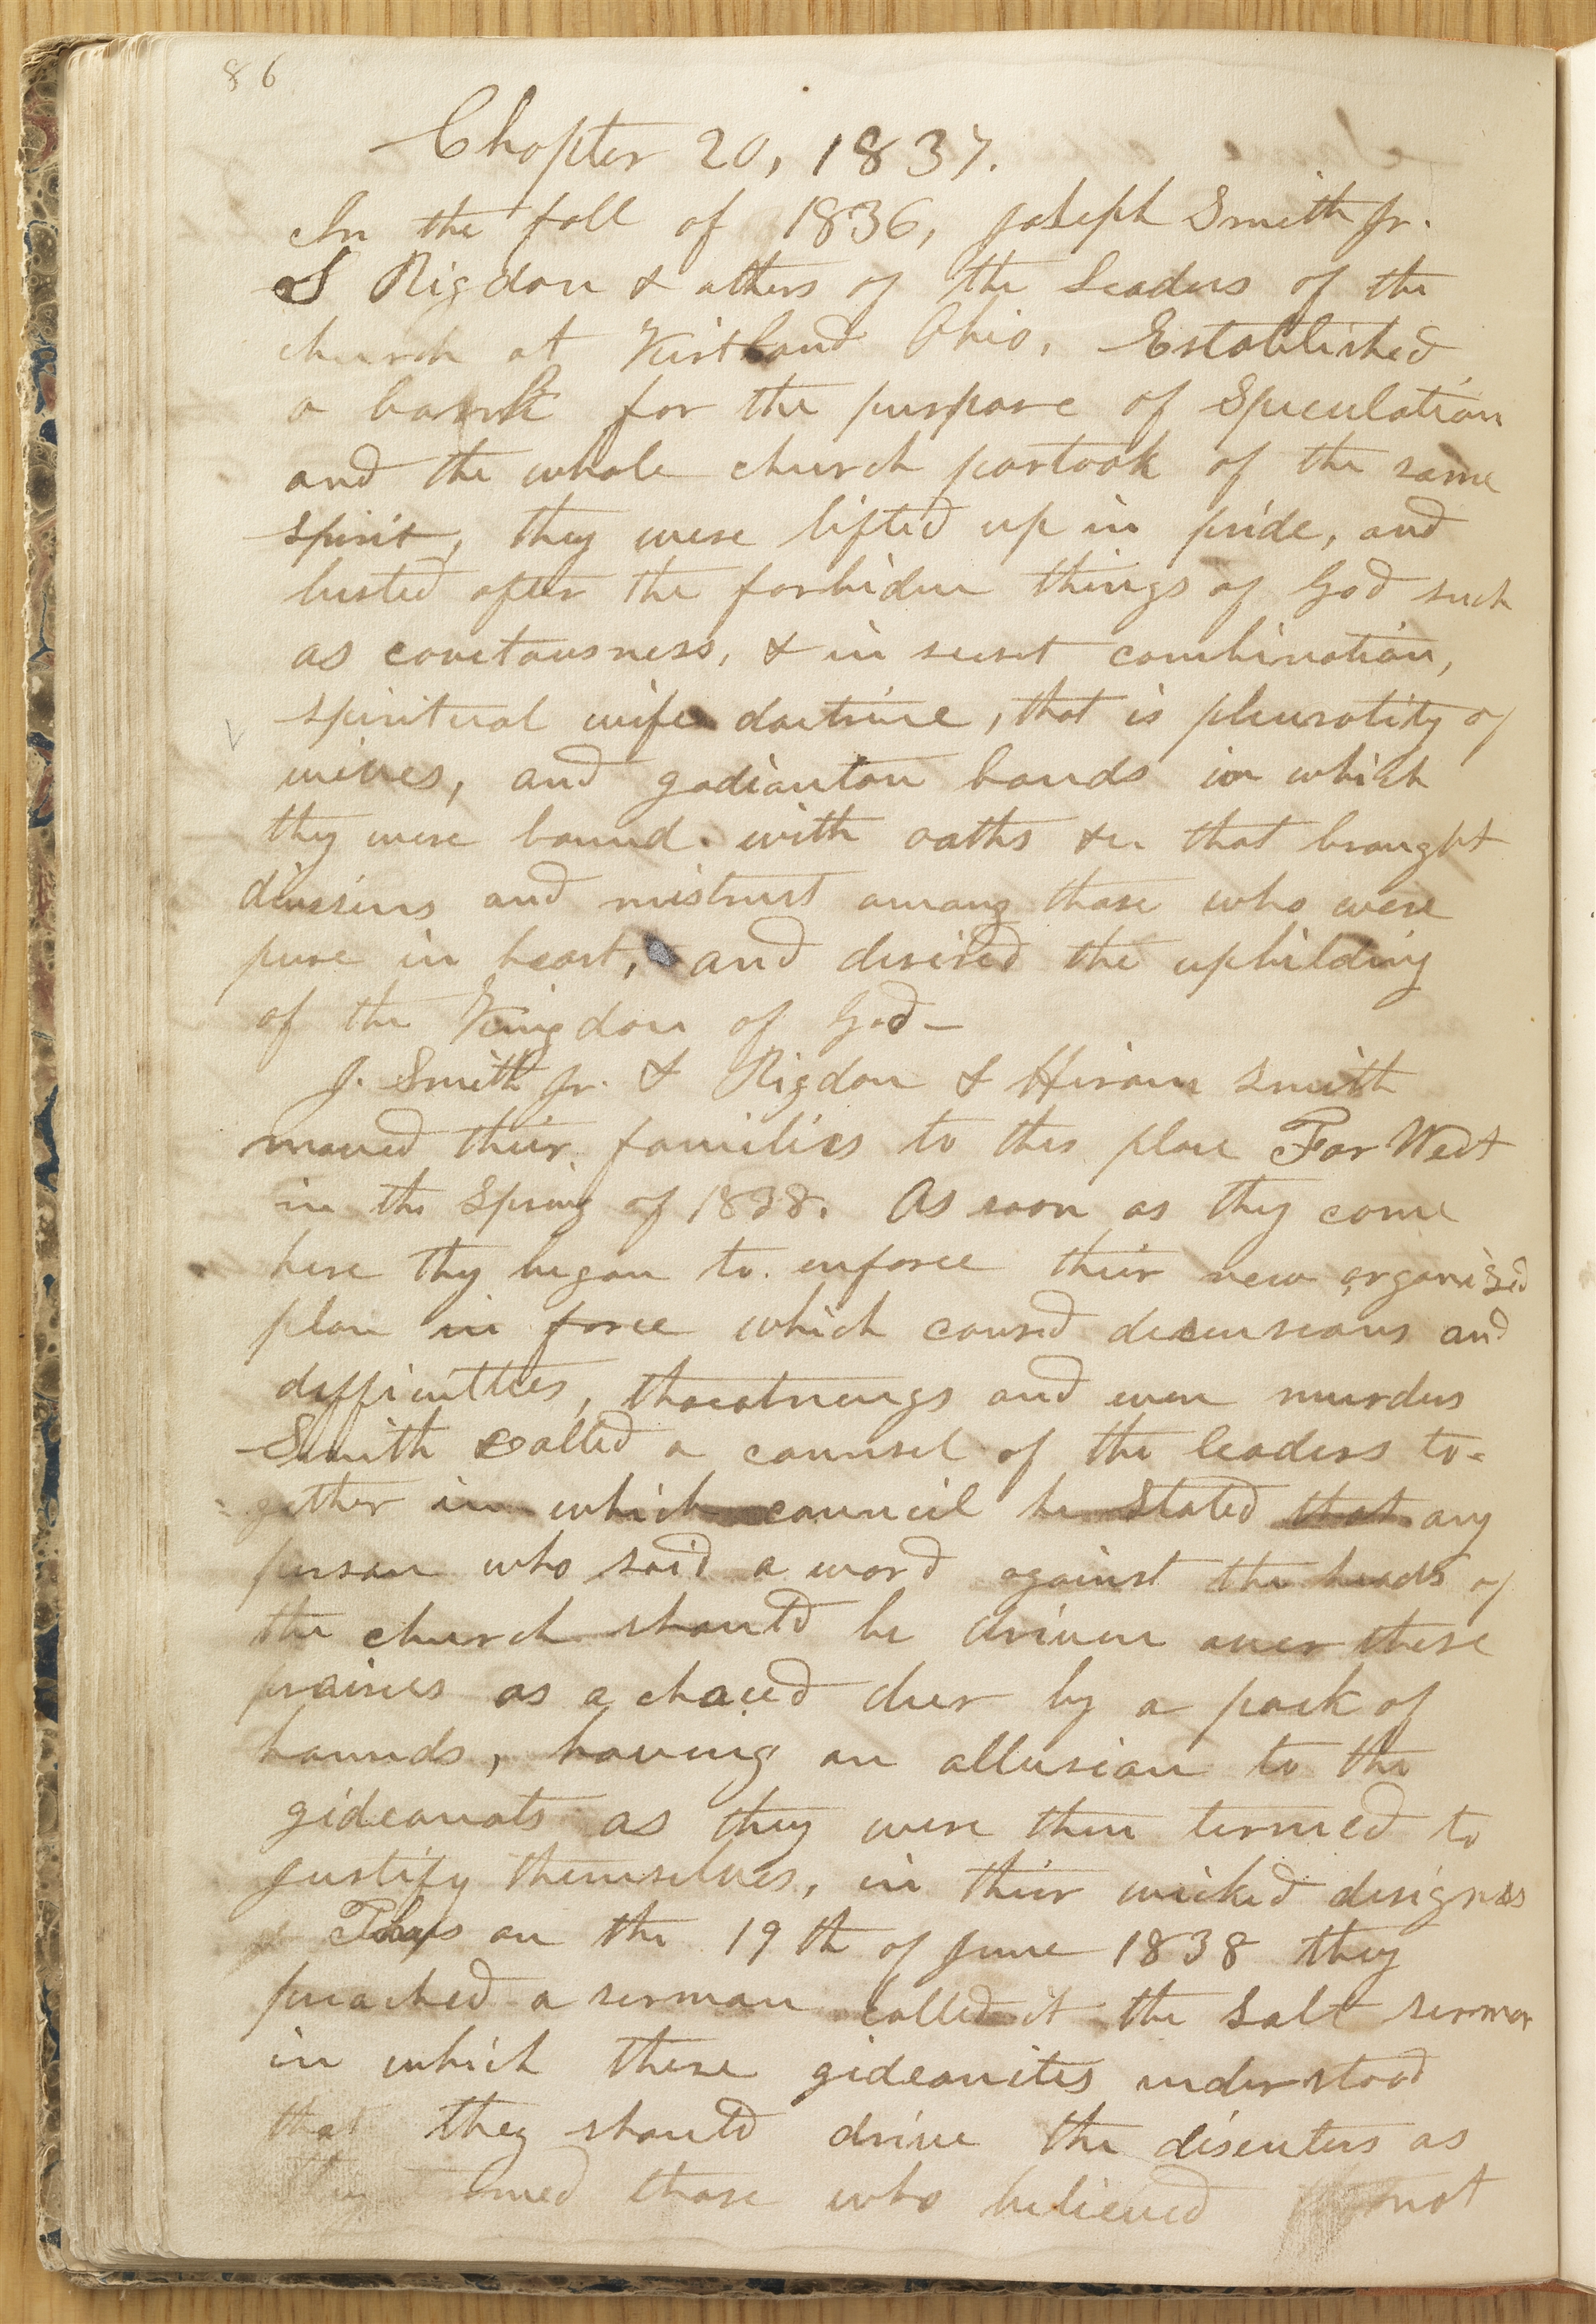 86
Chapter 20, 1837.
In the fall of 1836, Joseph Smith Jr.
S Rigdon & others of the Leaders of the
church at Kirtland Ohio, Established
a bank for the purpose of Speculation
and the whole church partook of the same
spirit, they were lifted up in pride, and
lusted after the forbiden things of God such
as covetousness, & in secret combination,
spiritual wife doctrine, that is plurality of
wives, and gadianton bands in which
they were bound with oaths &c that brought
divisions and mistrust among those who were
pure in heart, and desired the upbilding
of the Kingdom of God—
J. Smith Jr. & Rigdon & Hiram Smith
moved their families to this place Far West
in the Spring of 1838. As soon as they come
here they began to enforce their new organised
plan in force which caused and
difficulties, threatnings and even murders
Smith called a counsel of the leaders to-
gether in which council he stated that any
person who said a word against the heads of
the church should be driven over these
prairies as a chaced deer by a pack of
hounds, having an allusion to the
gideonots as they were then termed to
justify themselves, in their wicked designs
Thus on the 19th of June 1838 they
preached a sermon called it the Salt sermon
in which these gideonites understood
that they should drive the disenters as
they termed those who believed not